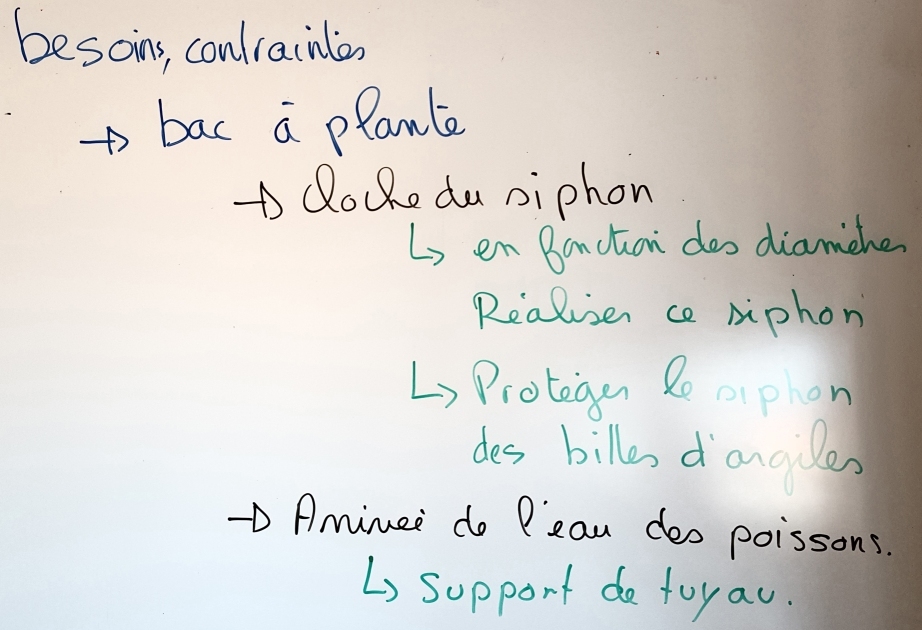 besoins, contraintes
→ bac à plante
→ Cloche du siphon
↳ en fonction des diamètres
Réaliser ce siphon
↳ Protéger le siphon
des billes d'argiles
→ Arrivée de l'eau des poissons.
↳ Support de tuyau.